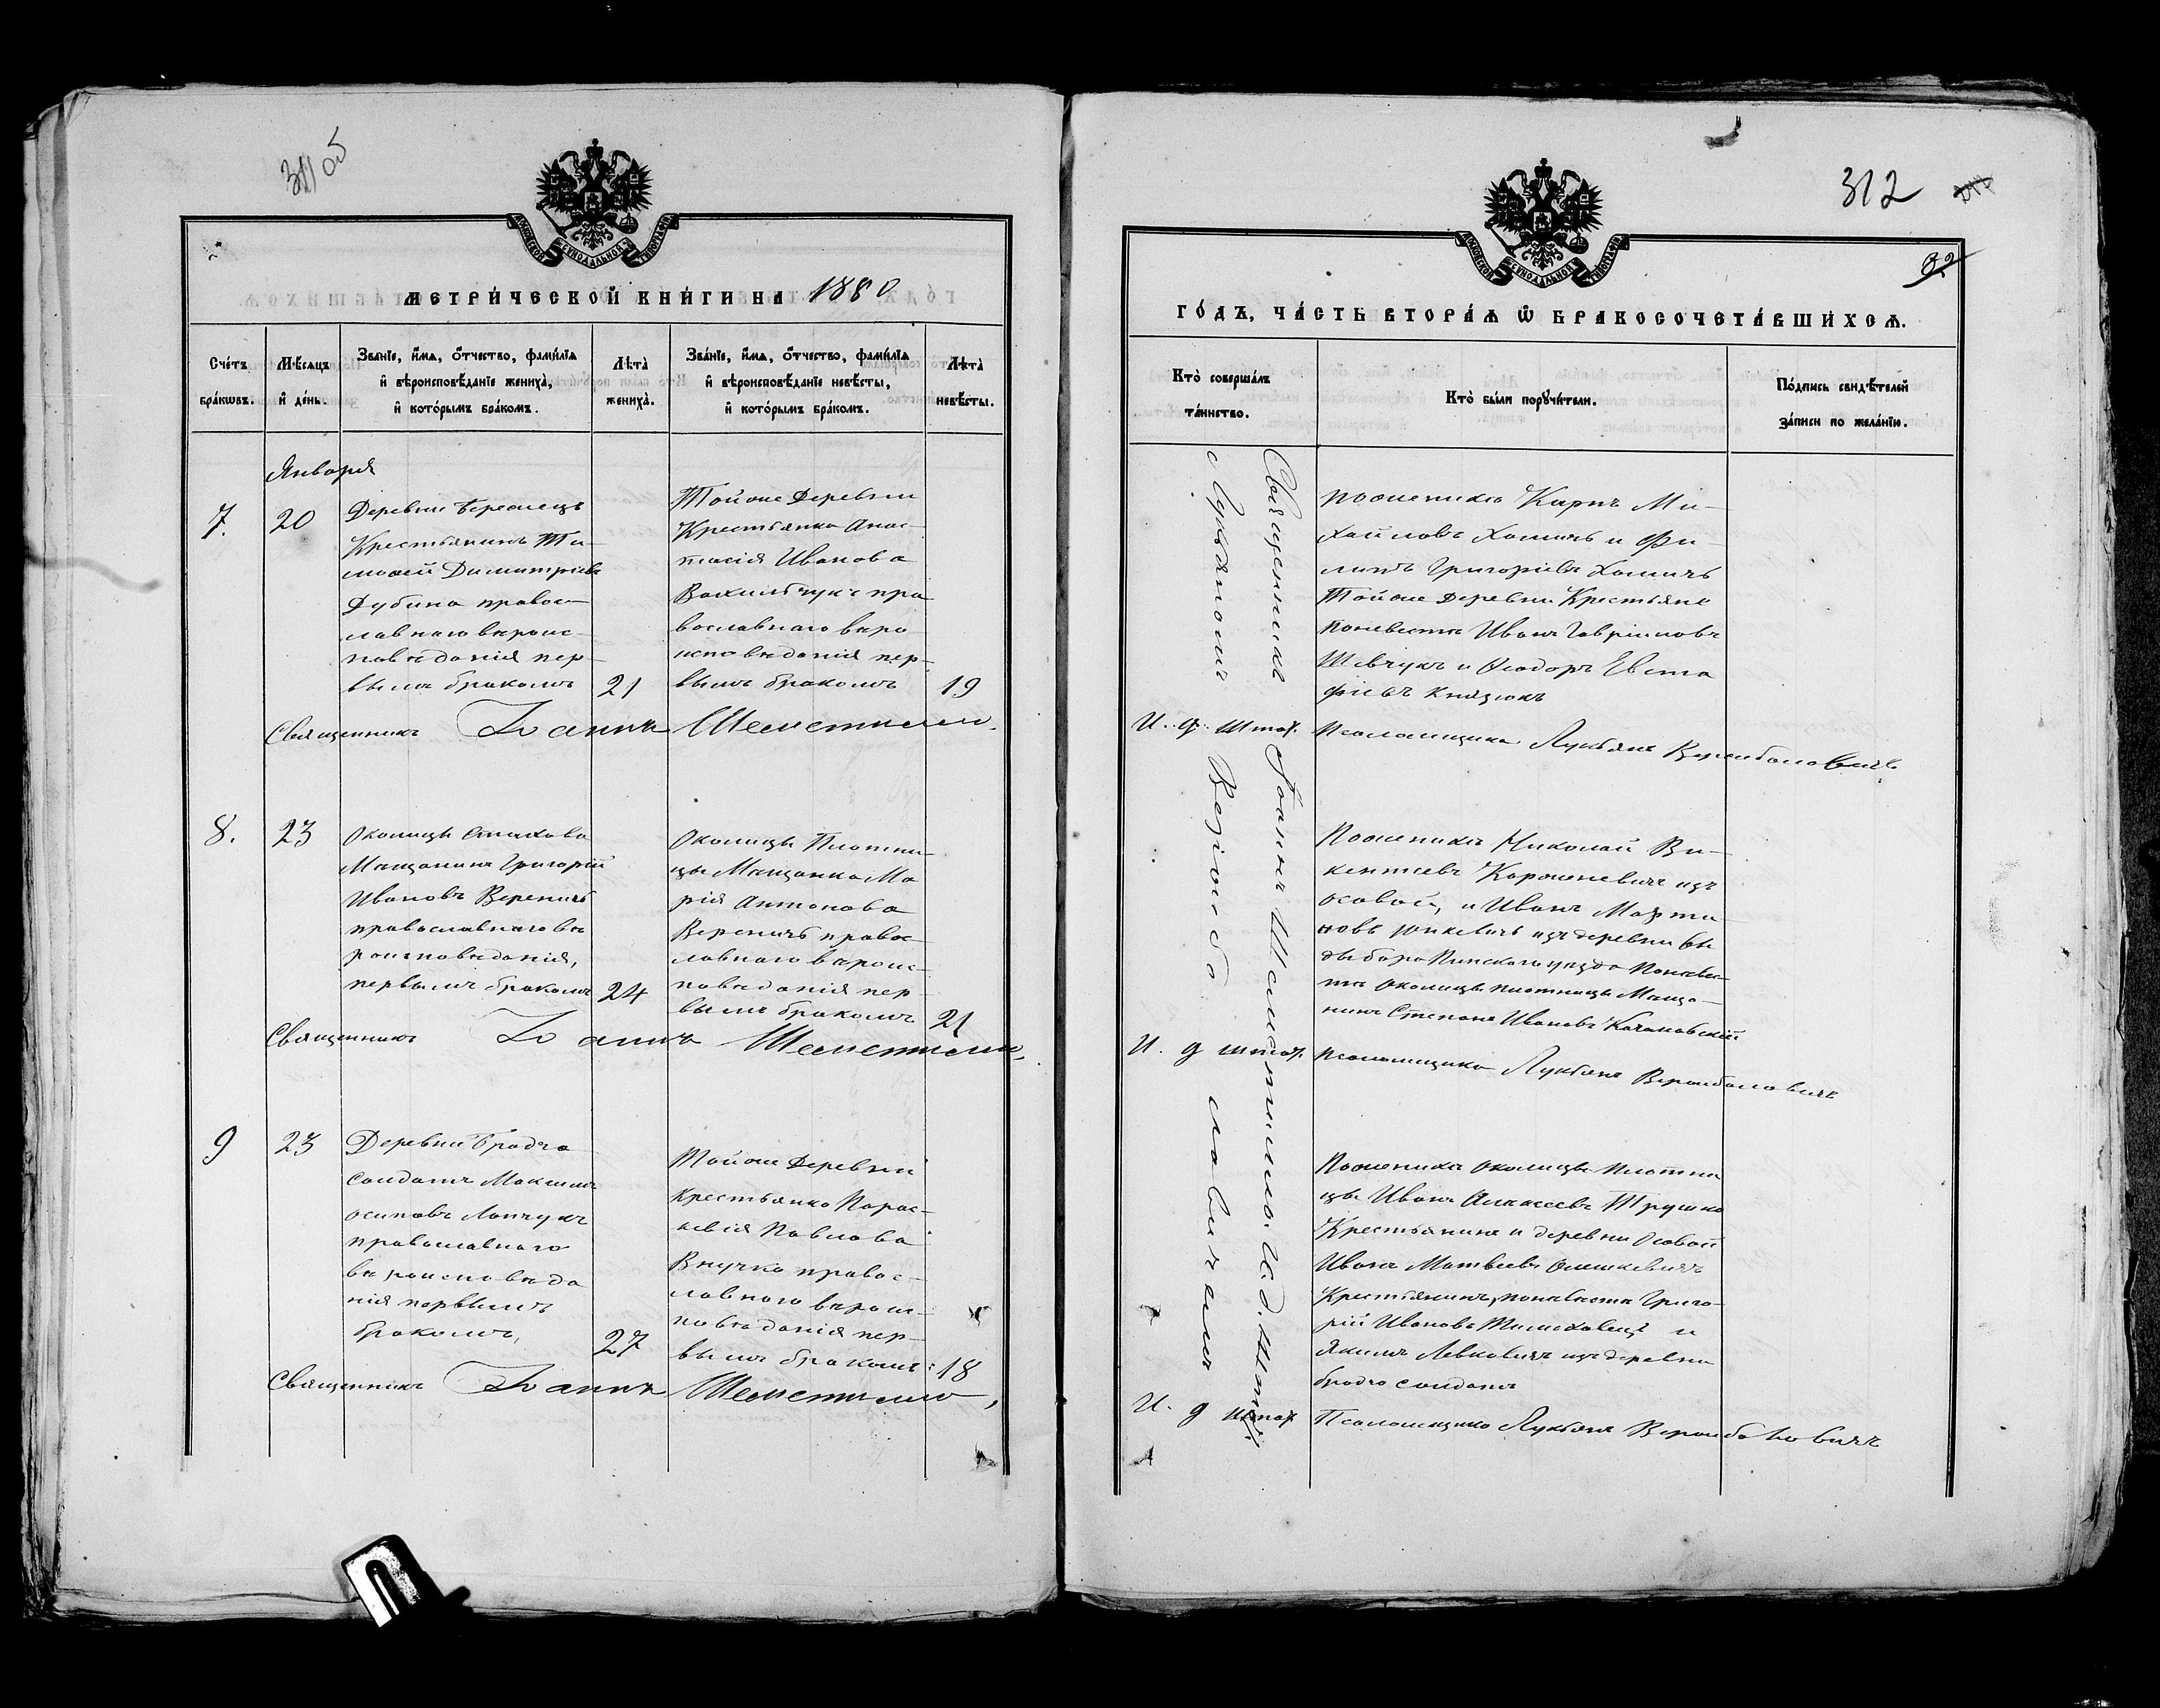 311 об
МОСКОВСКОЙ СѴНОДАЛЬНОЙ ТИПОГРАФІИ
МЕТРИ́ЧЕСКОЙ КНИ́ГИ НА 1880
Сче́тъ бра́кѡвъ.
Мѣ́сяцъ и҆ де́нь.
Зва́нїе, и҆́мѧ, ѻ҆́тчество, фами́лїѧ и҆ вѣроисповѣ́данїе жениха̀, и҆ кото́рымъ бра́комъ.
Лѣ́та жениха̀.
Зва́нїе, и҆́мѧ, ѻ҆́тчество, фами́лїѧ и҆ вѣроисповѣ́данїе невѣ́сты, и҆ кото́рымъ бра́комъ.
Лѣ́та невѣ́сты.
Января
7.
20
Деревни
Крестьянинъ Ти-
мофей Димитріевъ
Дубина правос-
лавнаго вѣроис-
повѣданія пер-
вымъ бракомъ
21
Тойже Деревни
Крестьянка Анас-
тасія Иванова
пра
вославнаго вѣро
исповѣданія пер-
вымъ бракомъ
19
Священникъ Іоаннъ Шеметилло.
8.
23
Околицы Стахова
Мѣщанинъ Григорій
Ивановъ Вереничъ
православнаго вѣ
роисповѣданія,
первымъ бракомъ
24
Околицы Плотни-
цы Мѣщанка Ма
рія Антонова
Вереничъ правос-
лавнаго вѣроис-
повѣданія пер-
вымъ бракомъ
21
Священникъ Іоаннъ Шеметилло.
9
23
Деревни Бродча
Солдатъ Максимъ
Осиповъ
православнаго
вѣроисповѣда
нія первымъ
бракомъ,
27
Тойже Деревни
Крестьянка Парас-
кевія Павлова
Внучко правос-
лавнаго вѣроис-
повѣданія пер-
вымъ бракомъ
18
Священникъ Іоаннъ Шеметилло,
312
32
МОСКОВСКОЙ СѴНОДАЛЬНОЙ ТИПОГРАФІИ
ГО́ДЪ, ЧА́СТЬ ВТОРА́Ѧ Ѡ҆ БРАКОСОЧЕТА́ВШИХСѦ.
Кто̀ соверша́лъ та́инство.
Кто̀ бы́ли порꙋчи́тели.
По́дпись свидѣ́телей за́писи по жела́нїю.
Священникъ Іоаннъ Шеметилло. И. д. Штат.
с Лукьяномъ
пожениху Карпъ Ми-
хайловъ Хомичъ и Фи-
липъ Григоріевъ Хомичъ
Тойже Деревни Крестьяне
поневѣстѣ Иванъ Гавріиловъ
Шевчукъ и Ѳеодоръ Евста
фіевъ Князюкъ
И. д. Штат. Псаломщика Лукьянъ
Пожениху Николай Ви-
кентіевъ изъ
Осовой, и Иванъ Марти
новъ Юнкевичъ изъ деревни
Пинскаго уѣзда Поневѣс-
тѣ Околицы Плотницы Мѣща-
нинъ Степанъ Ивановъ Качановскій
И. д Штат. Псаломщика Лукьянъ
Пожениху Околицы Плотни
цы Иванъ Алексеевъ Трушко
Крестьянинъ и деревни Осовой
Иванъ Матвеевъ Олешкевичъ
Крестьянинъ, поневѣстѣ Григо-
рій Ивановъ и
Якимъ Левковичъ изъ деревни
Бродча солдатъ
И. д Штат. Псаломщика Лукьянъ